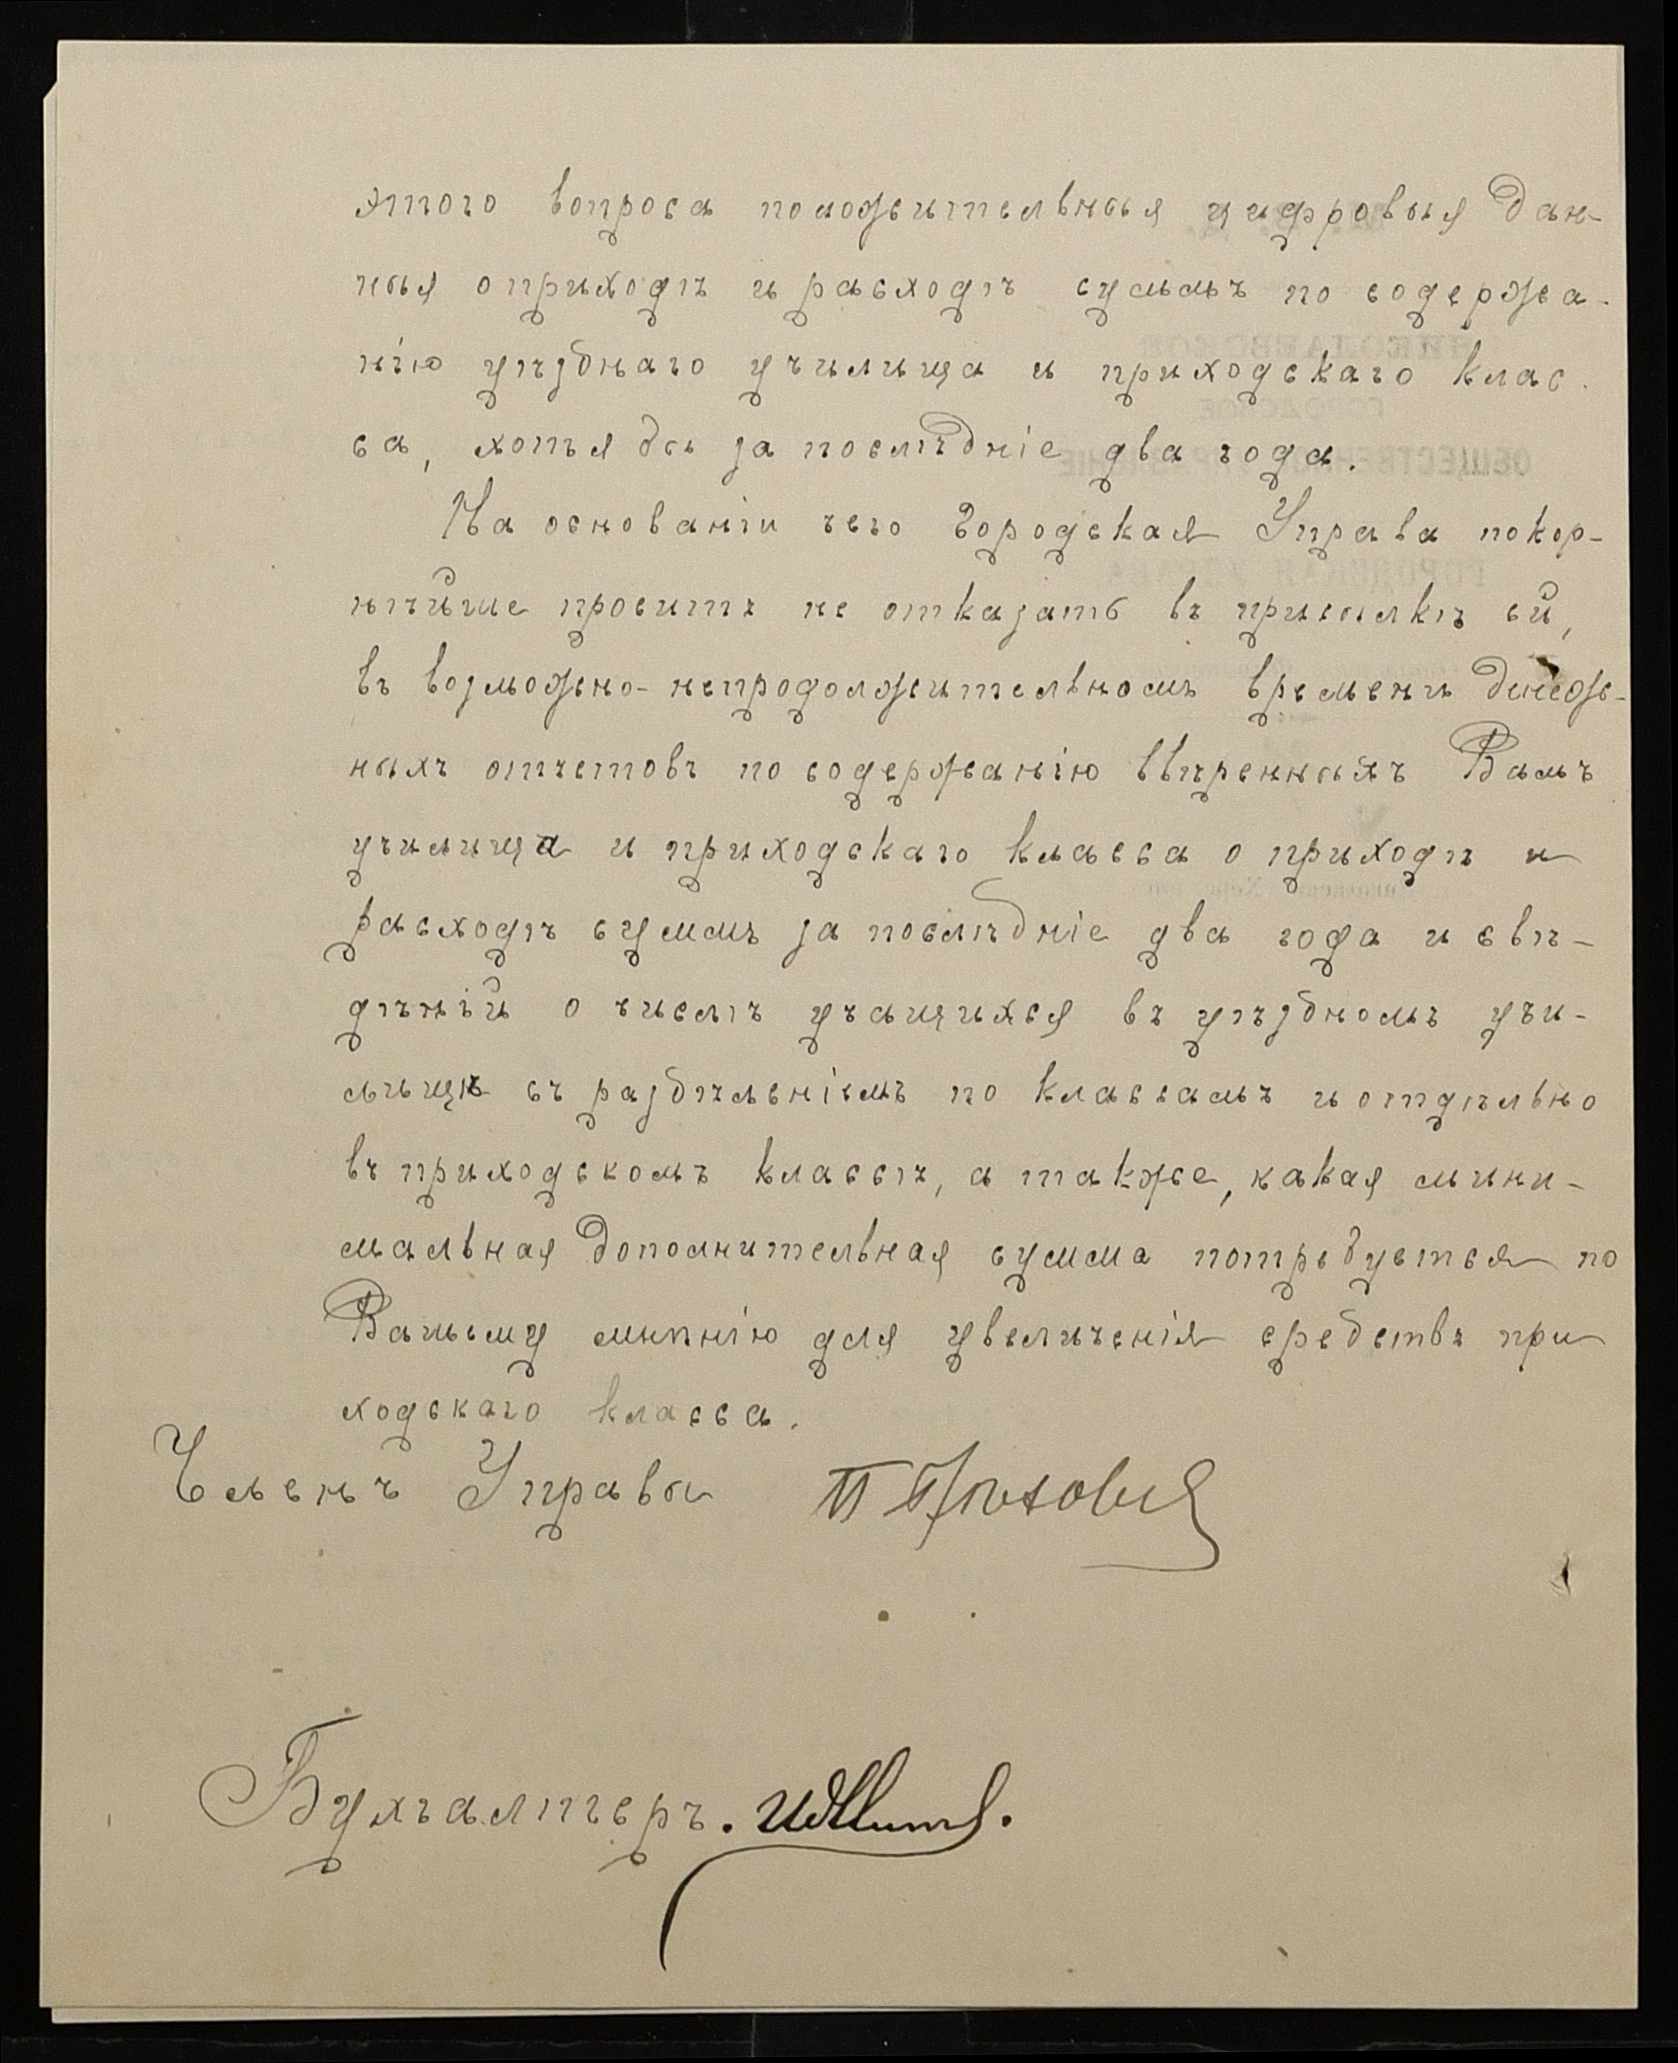 этого вопроса положительныя цифровыя дан-
ныя о приходѣ и расходѣ суммъ по содержа-
нію уѣзднаго училища и приходскаго клас-
са, хотя бы за послѣдніе два года.
На основаніи чего Городская Управа покор-
нѣйше проситъ не отказать въ присылкѣ ей,
въ возможно-непродолжительномъ времени денеж-
ныхъ отчетовъ по содержанію ввѣренныхъ Вамъ
училища и приходскаго класса о приходѣ и
расходѣ суммъ за послѣдніе два года и свѣ-
дѣній о числѣ учащихся въ уѣздномъ учи-
лищѣ съ раздѣленіемъ по классамъ и отдѣльно
въ приходскомъ классѣ, а также, какая мини-
мальная дополнительная сумма потребуется по
Вашему мнѣнію для увеличенія средствъ при
ходскаго класса.
Членъ Управы
Бухгалтеръ.